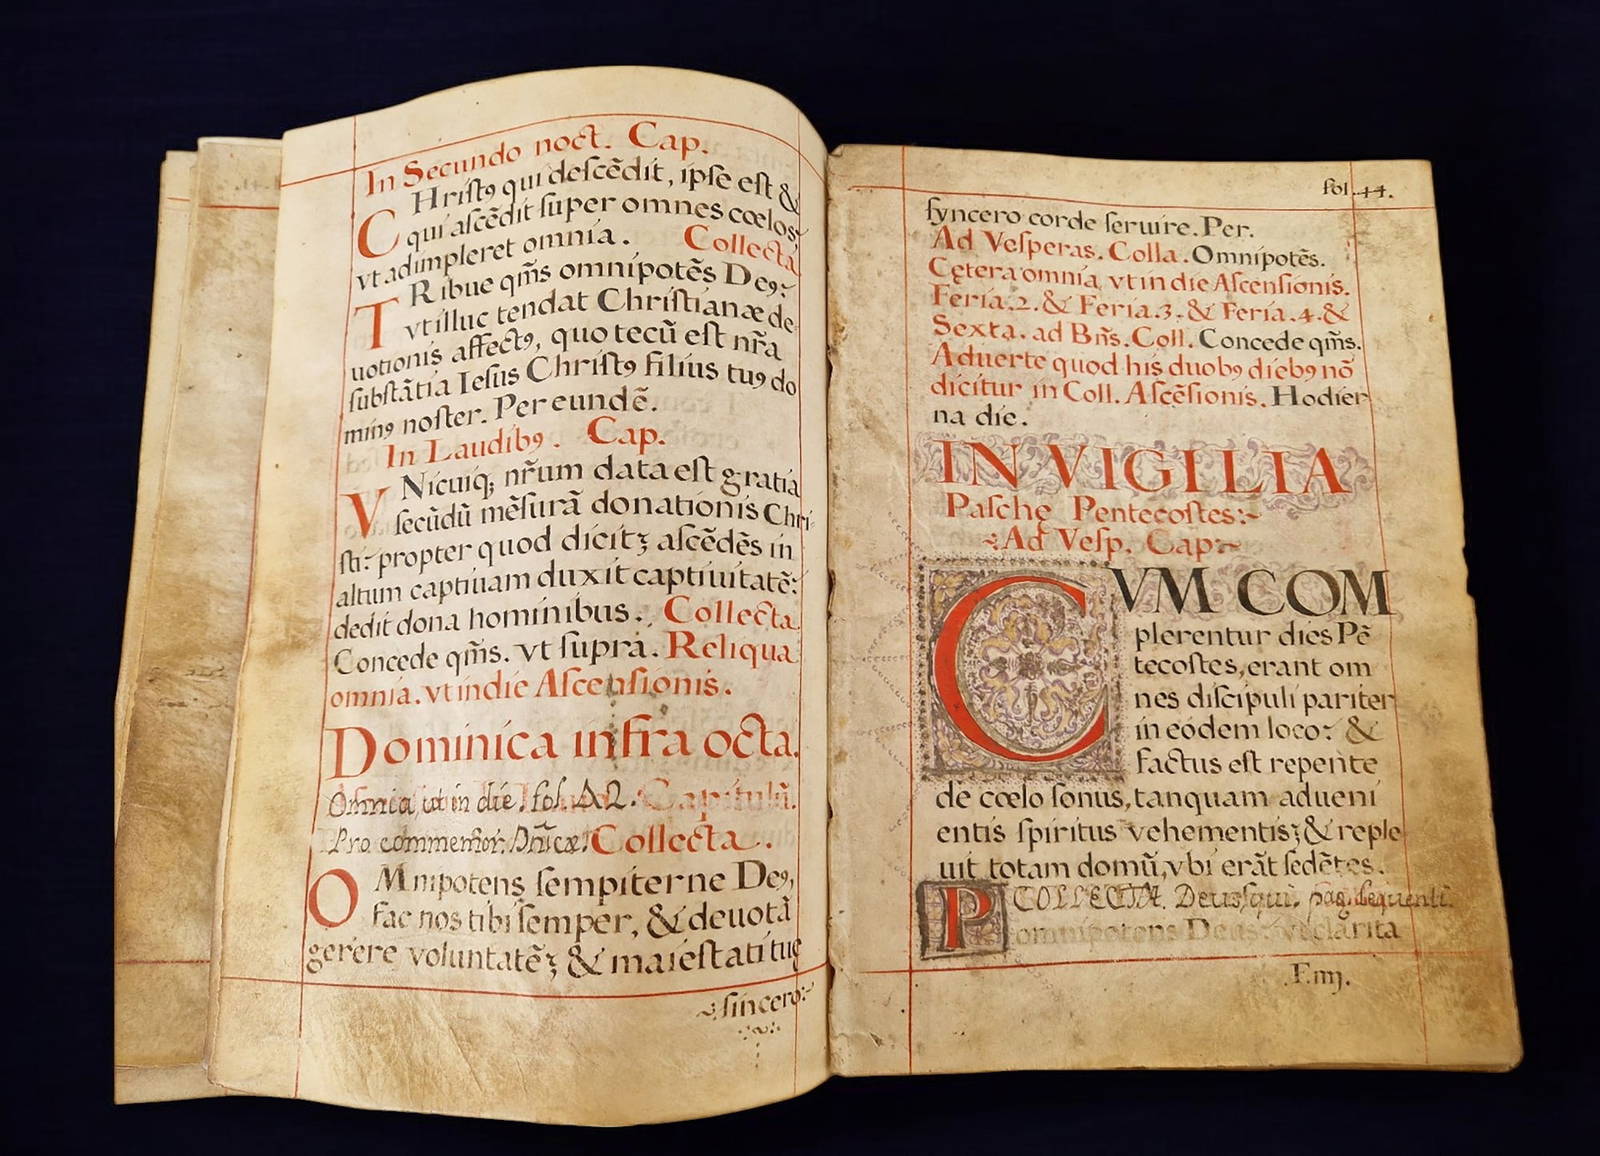 In Secundo noct. Cap.
CHriſtꝯ qui deſcēdit, ipſe eſt &
qui aſcēdit ſuper omnes cœlos,
vt adimpleret omnia. Collecta
TRibue qm̄s omnipotēs Deꝯ:
vt illuc tendat Chriſtianæ de
uotionis affectꝯ, quo tecū eſt nr̄a
ſubſtātia Ieſus Chriſtꝯ filius tuꝯ do
minꝯ noſter. Per eundē.
In Laudibꝯ. Cap.
VNicuiq; nr̄um data eſt gratia
ſecūdū mēſurā donationis Chri
ſti: propter quod dicitꝫ aſcēdēs in
altum captiuam duxit captiuitatē:
dedit dona hominibus. Collecta
Concede qm̄s. vt ſupra. Reliqua
omnia. vt in die Aſcenſionis.
Dominica infra octa.
Omnia, ut in die. fol. 42. Capitulū.
Pro commemor. Dn̄icæ. Collecta.
OMnipotens ſempiterne Deꝯ,
fac nos tibi ſemper, & deuotā
gerere voluntatēꝫ & maieſtati tuę
ſincero:
fol. 44.
ſyncero corde ſeruire. Per.
Ad Veſperas. Colla. Omnipotēs.
Cętera omnia vt in die Aſcenſionis.
Feria. 2. & Feria. 3. & Feria. 4. &
Sexta. ad Bn̄s. Coll. Concede qm̄s.
Aduerte quod his duobꝯ diebꝯ nō
dicitur in Coll. Aſcēſionis. Hodier
na die.
IN VIGILIA
Paſchę Pentecoſtes:~
Ad Veſp. Cap:~
CVM COM
plerentur dies Pē
tecoſtes, erant om
nes diſcipuli pariter
in eodem loco: &
factus eſt repente
de cœlo ſonus, tanquam adueni
entis ſpiritus vehementisꝫ & reple
uit totam domū, vbi erāt ſedētes.
P COLLECTA. Deus, qui. pag. sequenti.
omnipotens Deus: vt clarita
F. iiij.